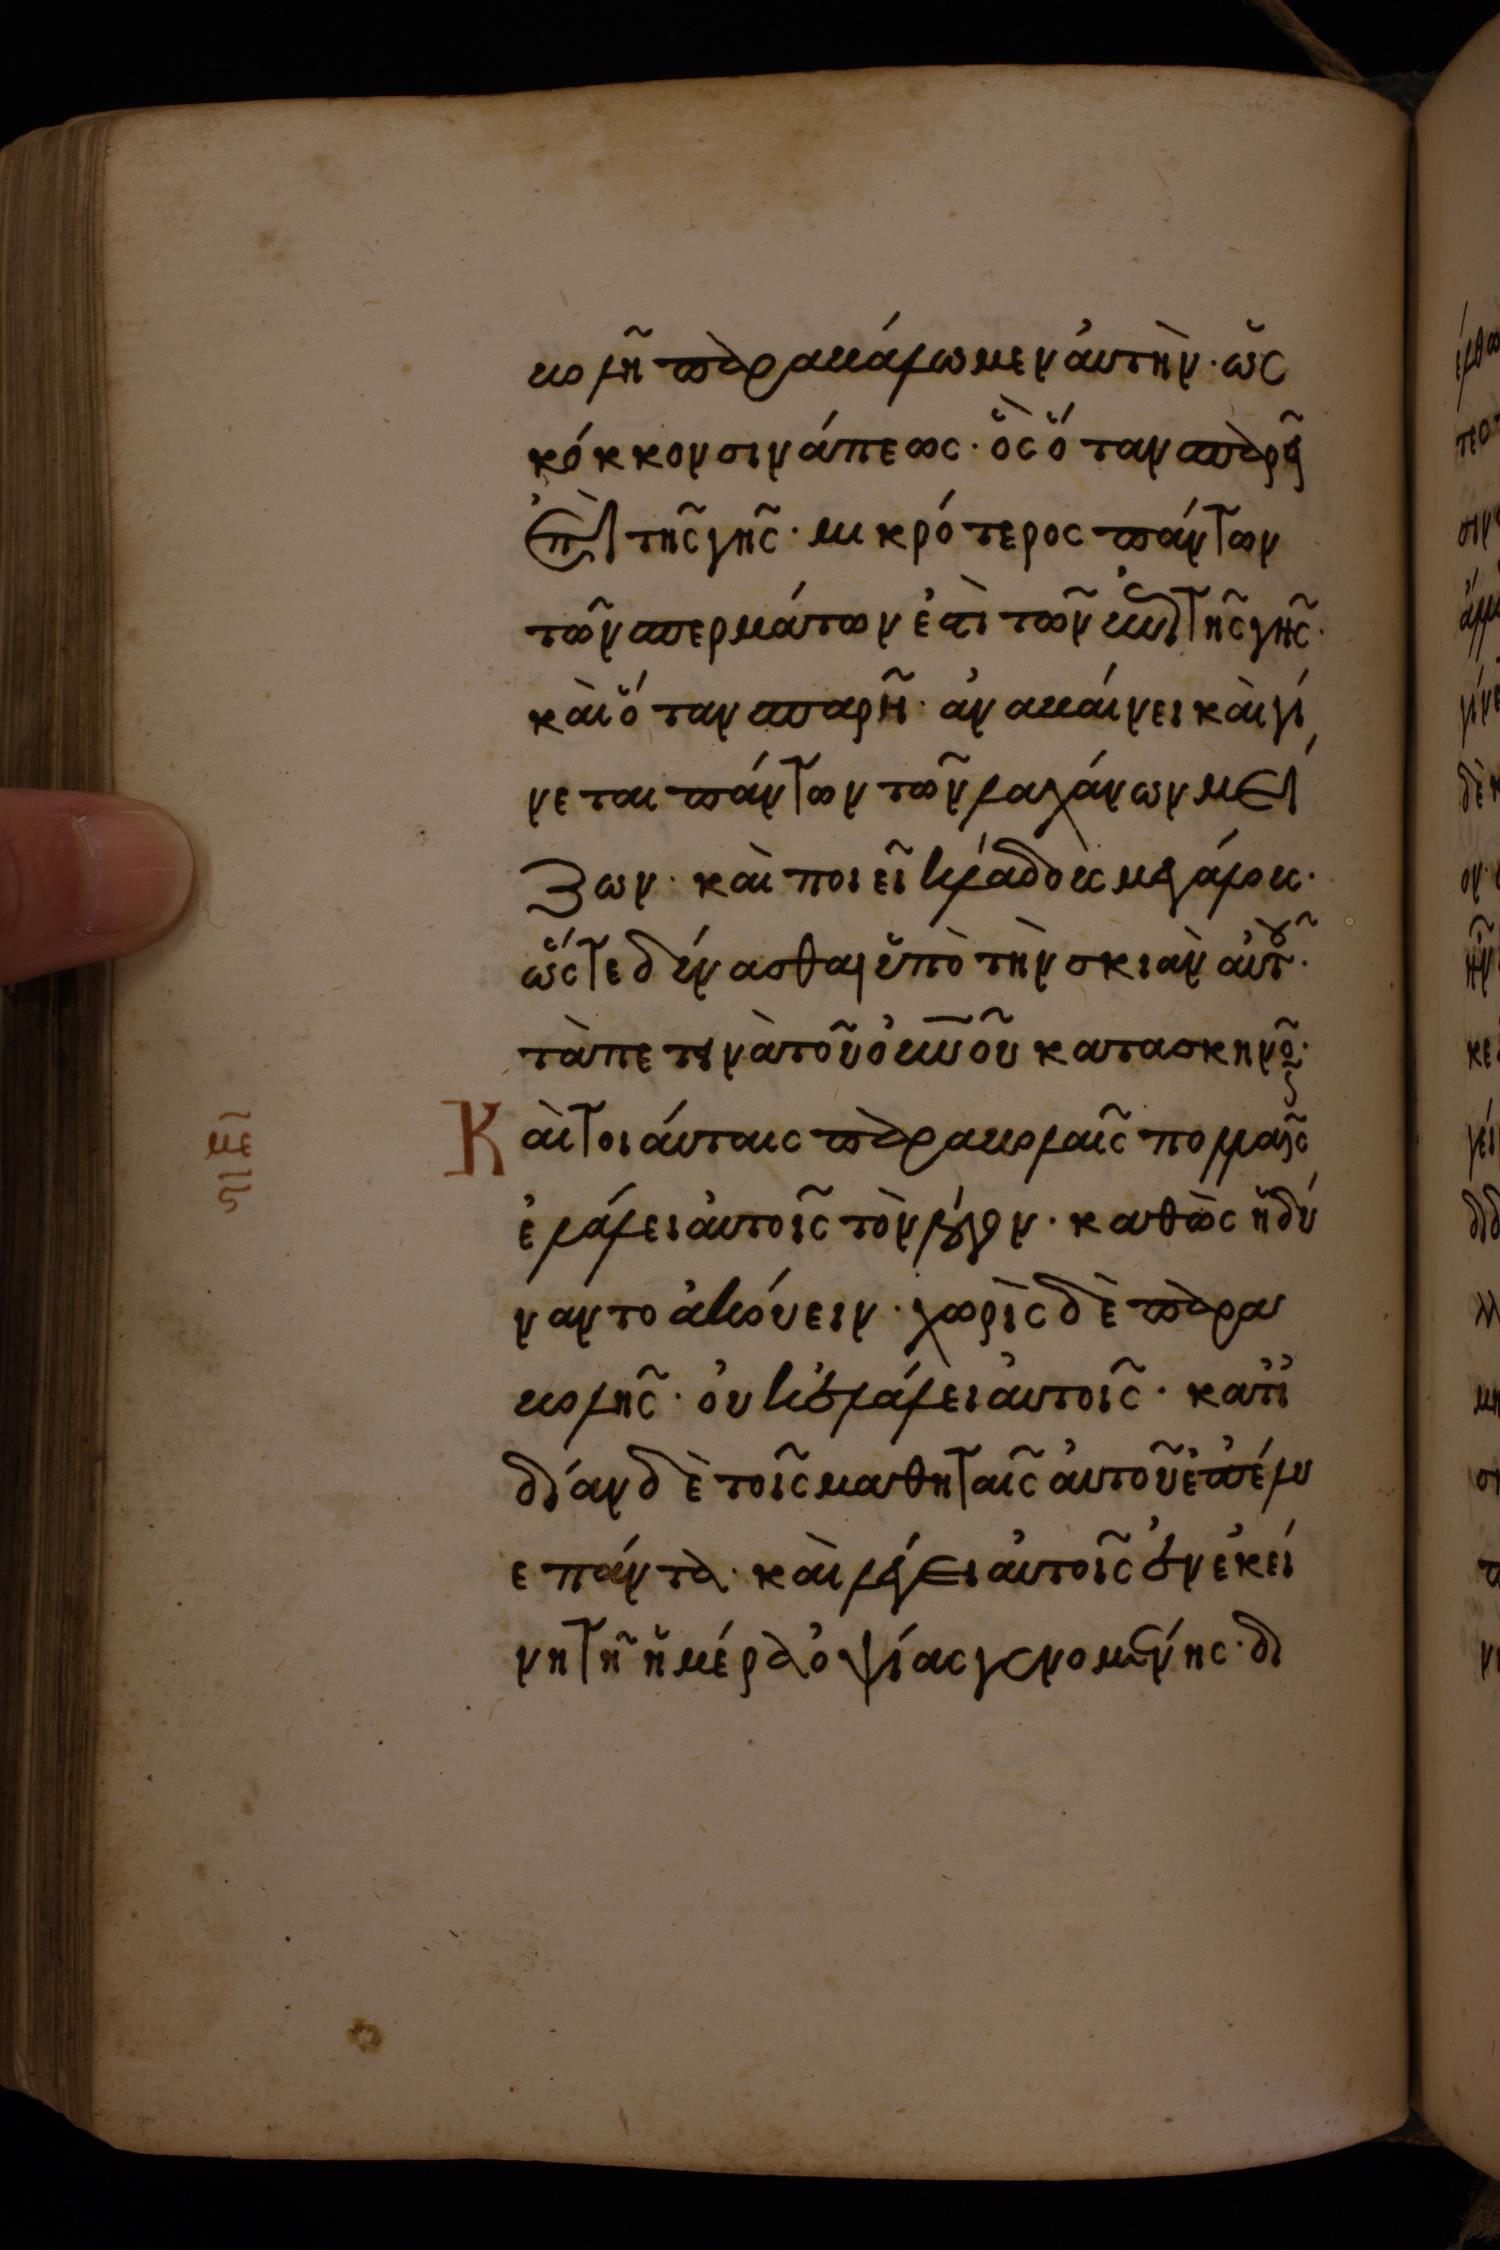 βολῆ παραβάλωμεν αὐτὴν· ὡς
κόκκον σινάπεως· ὃς ὅταν σπαρῆ
ἐπὶ τῆς γῆς· μικρότερος πάντων
τῶν σπερμάτων ἐστὶ τῶν ἐπὶ τῆς γῆς·
καὶ ὅταν σπαρῆ· ἀναβαίνει καὶ γί
νεται πάντων τῶν λαχάνων μεί
ζων· καὶ ποιεῖ κλάδους μεγάλους·
ὥστε δύνασθαι ὑπὸ τὴν σκιὰν αὐτοῦ·
τὰ πετεινὰ τοῦ οὐνοῦ κατασκηνοῦν·
Καὶ τοιάυταις παραβολαῖς πολλαῖς
ἐλάλει αὐτοῖς τὸν λόγον· καθὼς ἠδύ
ναντο ἀκούειν· χωρὶς δὲ παρα
βολῆς· οὐκ ἐλάλει αὐτοῖς· κατ ἰ
δίαν δὲ τοῖς μαθηταῖς αὐτοῦ ἐπέλυ
ε πάντα· καὶ λέγει αὐτοῖς ἐν ἐκεί
νη τῆ ἡμέρα ὀψίας γενομένης· δι